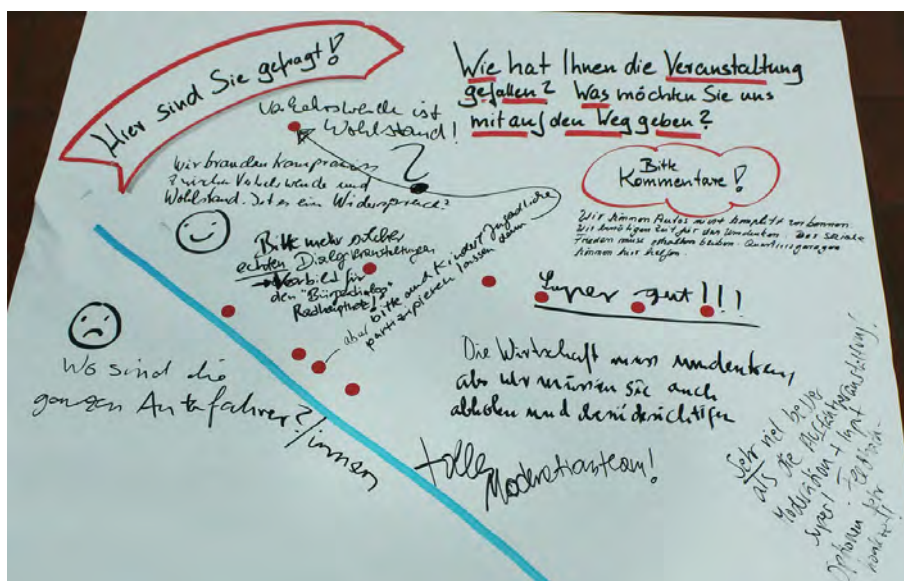 Hier sind Sie gefragt!
Wie hat Ihnen die Veranstaltung
gefallen? Was möchten Sie uns
mit auf den Weg geben?
Bitte
Kommentare!
Verkehrswende ist
Wohlstand!
?
Wir brauchen Kompromiss
zwischen Verkehrswende und
Wohlstand. Ist es ein Widerspruch?
Wir können Autos nicht komplett verbannen.
Wir benötigen Zeit für das Umdenken. Der soziale
Frieden muss erhalten bleiben. Quartiersgaragen
können hier helfen.
Bitte mehr solcher
echten Dialogveranstaltungen
→ Vorbild für
den "Bürgerdialog
Radhauptnetz"!
aber bitte auch Kinder + Jugendliche
partizipieren lassen dann
Super gut!!!
Wo sind die
ganzen Autofahrer?/innen
Die Wirtschaft muss umdenken,
aber wir müssen sie auch
abholen und berücksichtigen
tolles
Moderationsteam!
Sehr viel besser
als die Auftaktveranstaltung!
Moderation + Input
super!
Optionen